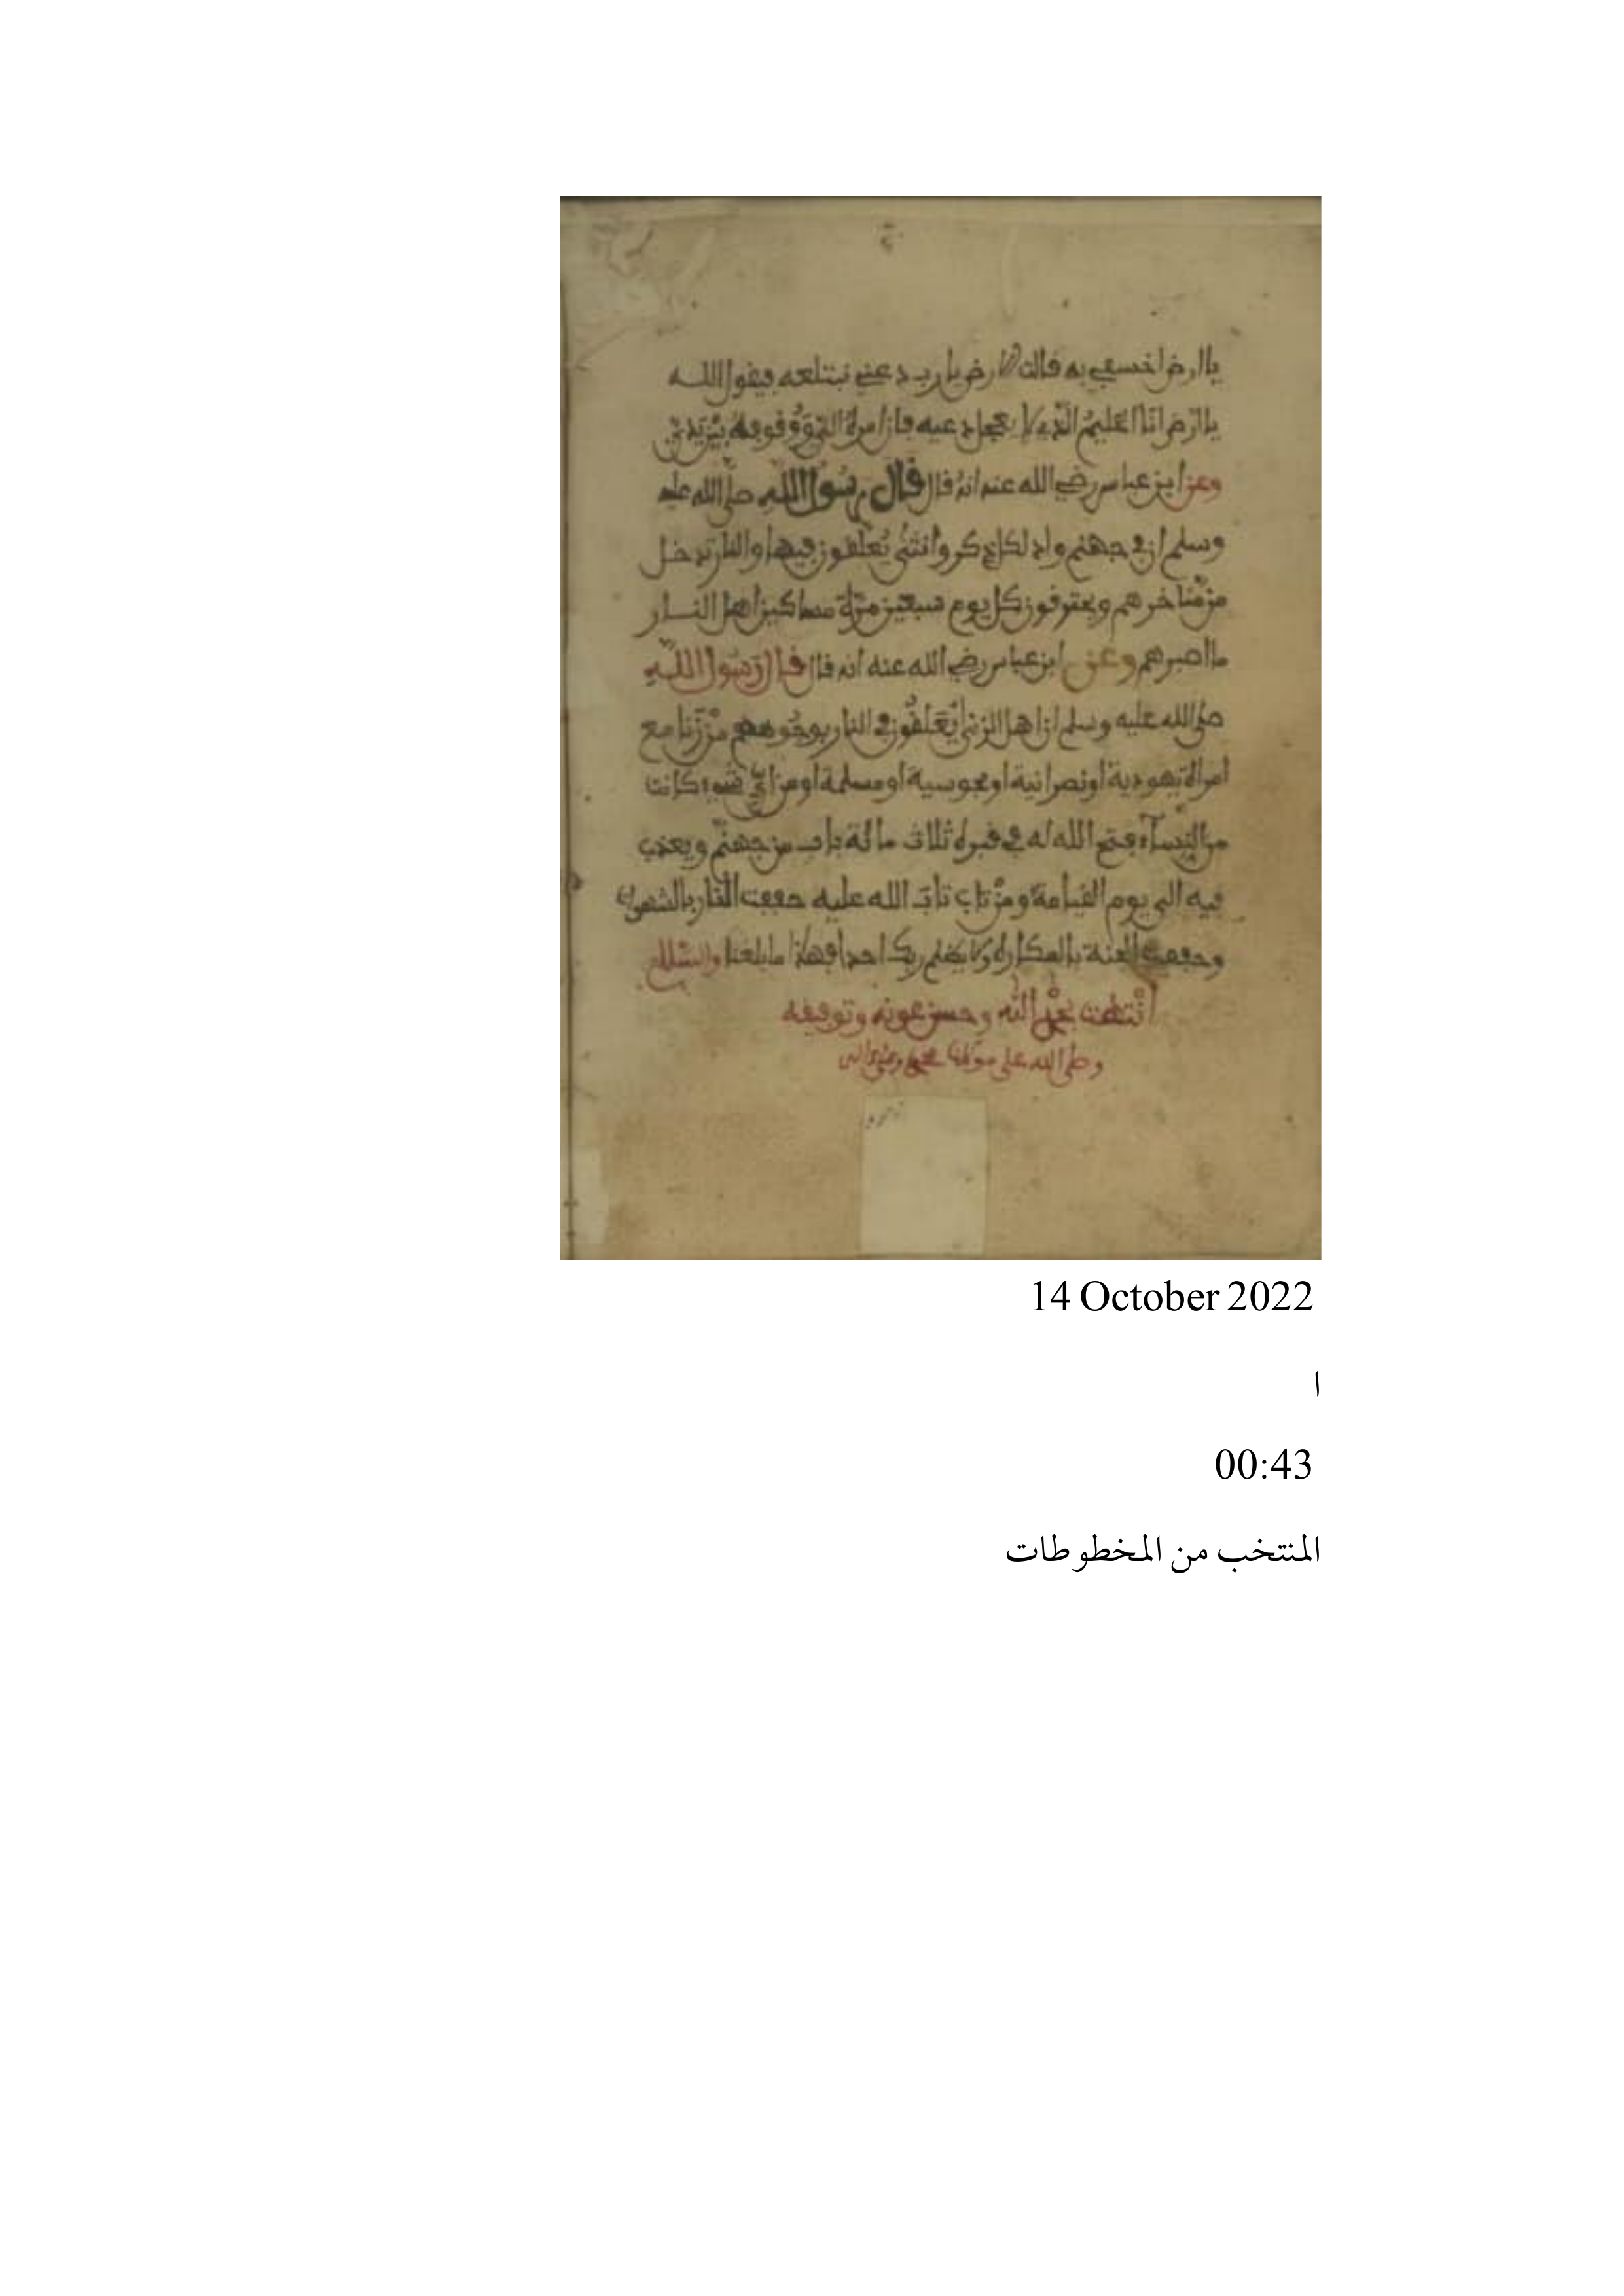 يا ارض اخسعي به فالت الارض يا رب دعني نبتلعه فيقول الله
يا ارض انا الحليم الذي لا يعجل دعيه فان امره القوة وقوفه
وعن ابن عباس رضي الله عنه انه قال قال رسول الله صلى الله عليه
وسلم ان في جهنم واد لكل ذكر وانثى يعلقون فيها والنار تدخل
من مناخرهم ويحترقون كل يوم سبعين مرة مساكين اهل النار
ما اصبرهم وعن ابن عباس رضي الله عنه انه قال قال رسول الله
صلى الله عليه وسلم ان اهل الزنى يعلقون في النار بوجوههم من زنا مع
امراة يهودية او نصرانية او مجوسية او مسلمة او من اي شيء كانت
من النساء فتح الله له في قبره ثلاث مائة باب من جهنم ويعذب
فيه الى يوم القيامة ومن تاب تاب الله عليه حففت النار بالشهوات
وحففت الجنة بالمكاره ولا يظلم ربك احدا فهذا ما بلغنا والسلام
انتهت بحمد الله وحسن عونه وتوفيقه
وصلى الله على مولانا محمد وعلى اله
14 October 2022
ا
00:43
المنتخب من المخطوطات